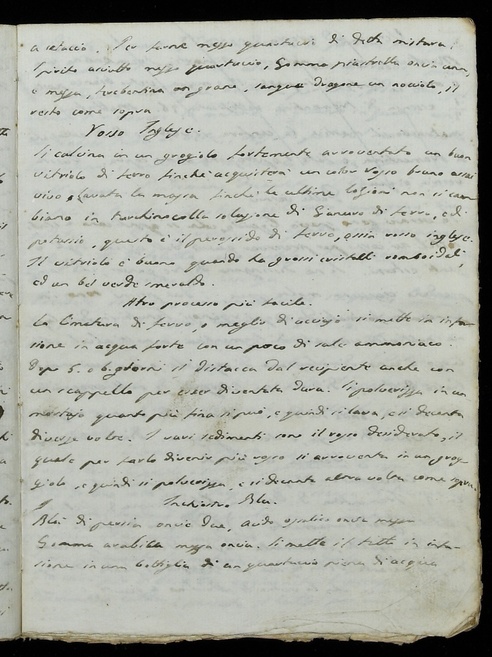 a setaccio. Per farne mezzo quartuccio di detta mistura:
Spirito mezzo quartuccio, Gomma piastrella oncia una,
e mezza, trebentina un grano, sangue dragone un nocciolo, il
resto come sopra
Rosso Inglese.
Si calcina in un grogiolo fortemente arroventato un buon
vitriolo di ferro finchè acquisterà un color rosso bruno assai
vivo, lavata la massa finchè le ultime lozioni non si cam-
biano in turchino colla soluzione di Cianuro di ferro, e di
potassio, questo è il perossido di ferro, ossia rosso inglese.
Il vitriolo è buono quando ha grossi cristalli romboidali,
ed un bel verde smeraldo.
Altro processo più facile.
La limatura di ferro, o meglio di acciajo si mette in infu-
sione in acqua forte con un poco di sale ammoniaco.
Dopo 5. o 6. giorni si distacca dal recipiente anche con
un scappello per esser diventata dura. Si polverizza in un
mortajo quanto più fina si può, e quindi si lava, e si decanta
diverse volte. I vari sedimenti sono il rosso desiderato, il
quale per farlo divenir più rosso si arroventa in un gro-
giolo, e quindi si polverizza, e si decanta altra volta come sopra.
Inchiostro Blu.
Blù di persia oncie due, acido ossalico oncia mezza
Gomma arabica mezza oncia. Si mette il tutto in infu-
sione in una bottiglia di un quartuccio piena di acqua